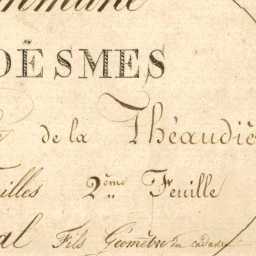 mmune
OËSMES
de la Théaudiè
illes 2ème Feuille
al Fils Géomètre du cadastre